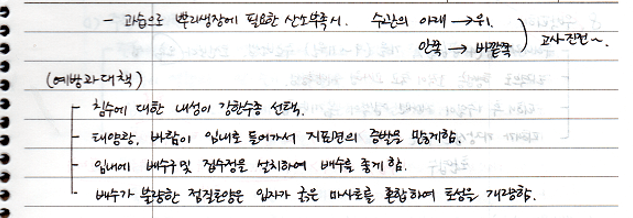 - 과습으로 뿌리생장에 필요한 산소부족시. 수간의 아래 → 위.
안쪽 → 바깥쪽 ) 고사진전~.
(예방과대책)
- 침수에 대한 내성이 강한수종 선택.
- 태양광, 바람이 임내로 들어가서 지표면의 증발을 많게함.
- 임내에 배수구 및 집수정을 설치하여 배수를 좋게 함.
- 배수가 불량한 점질토양은 입자가 굵은 마사토를 혼합하여 토성을 개량함.